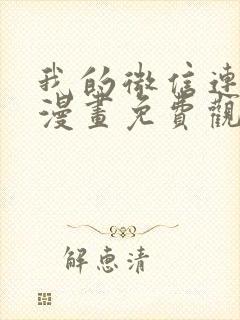 我的微信連
漫畫免費觀
解惠清